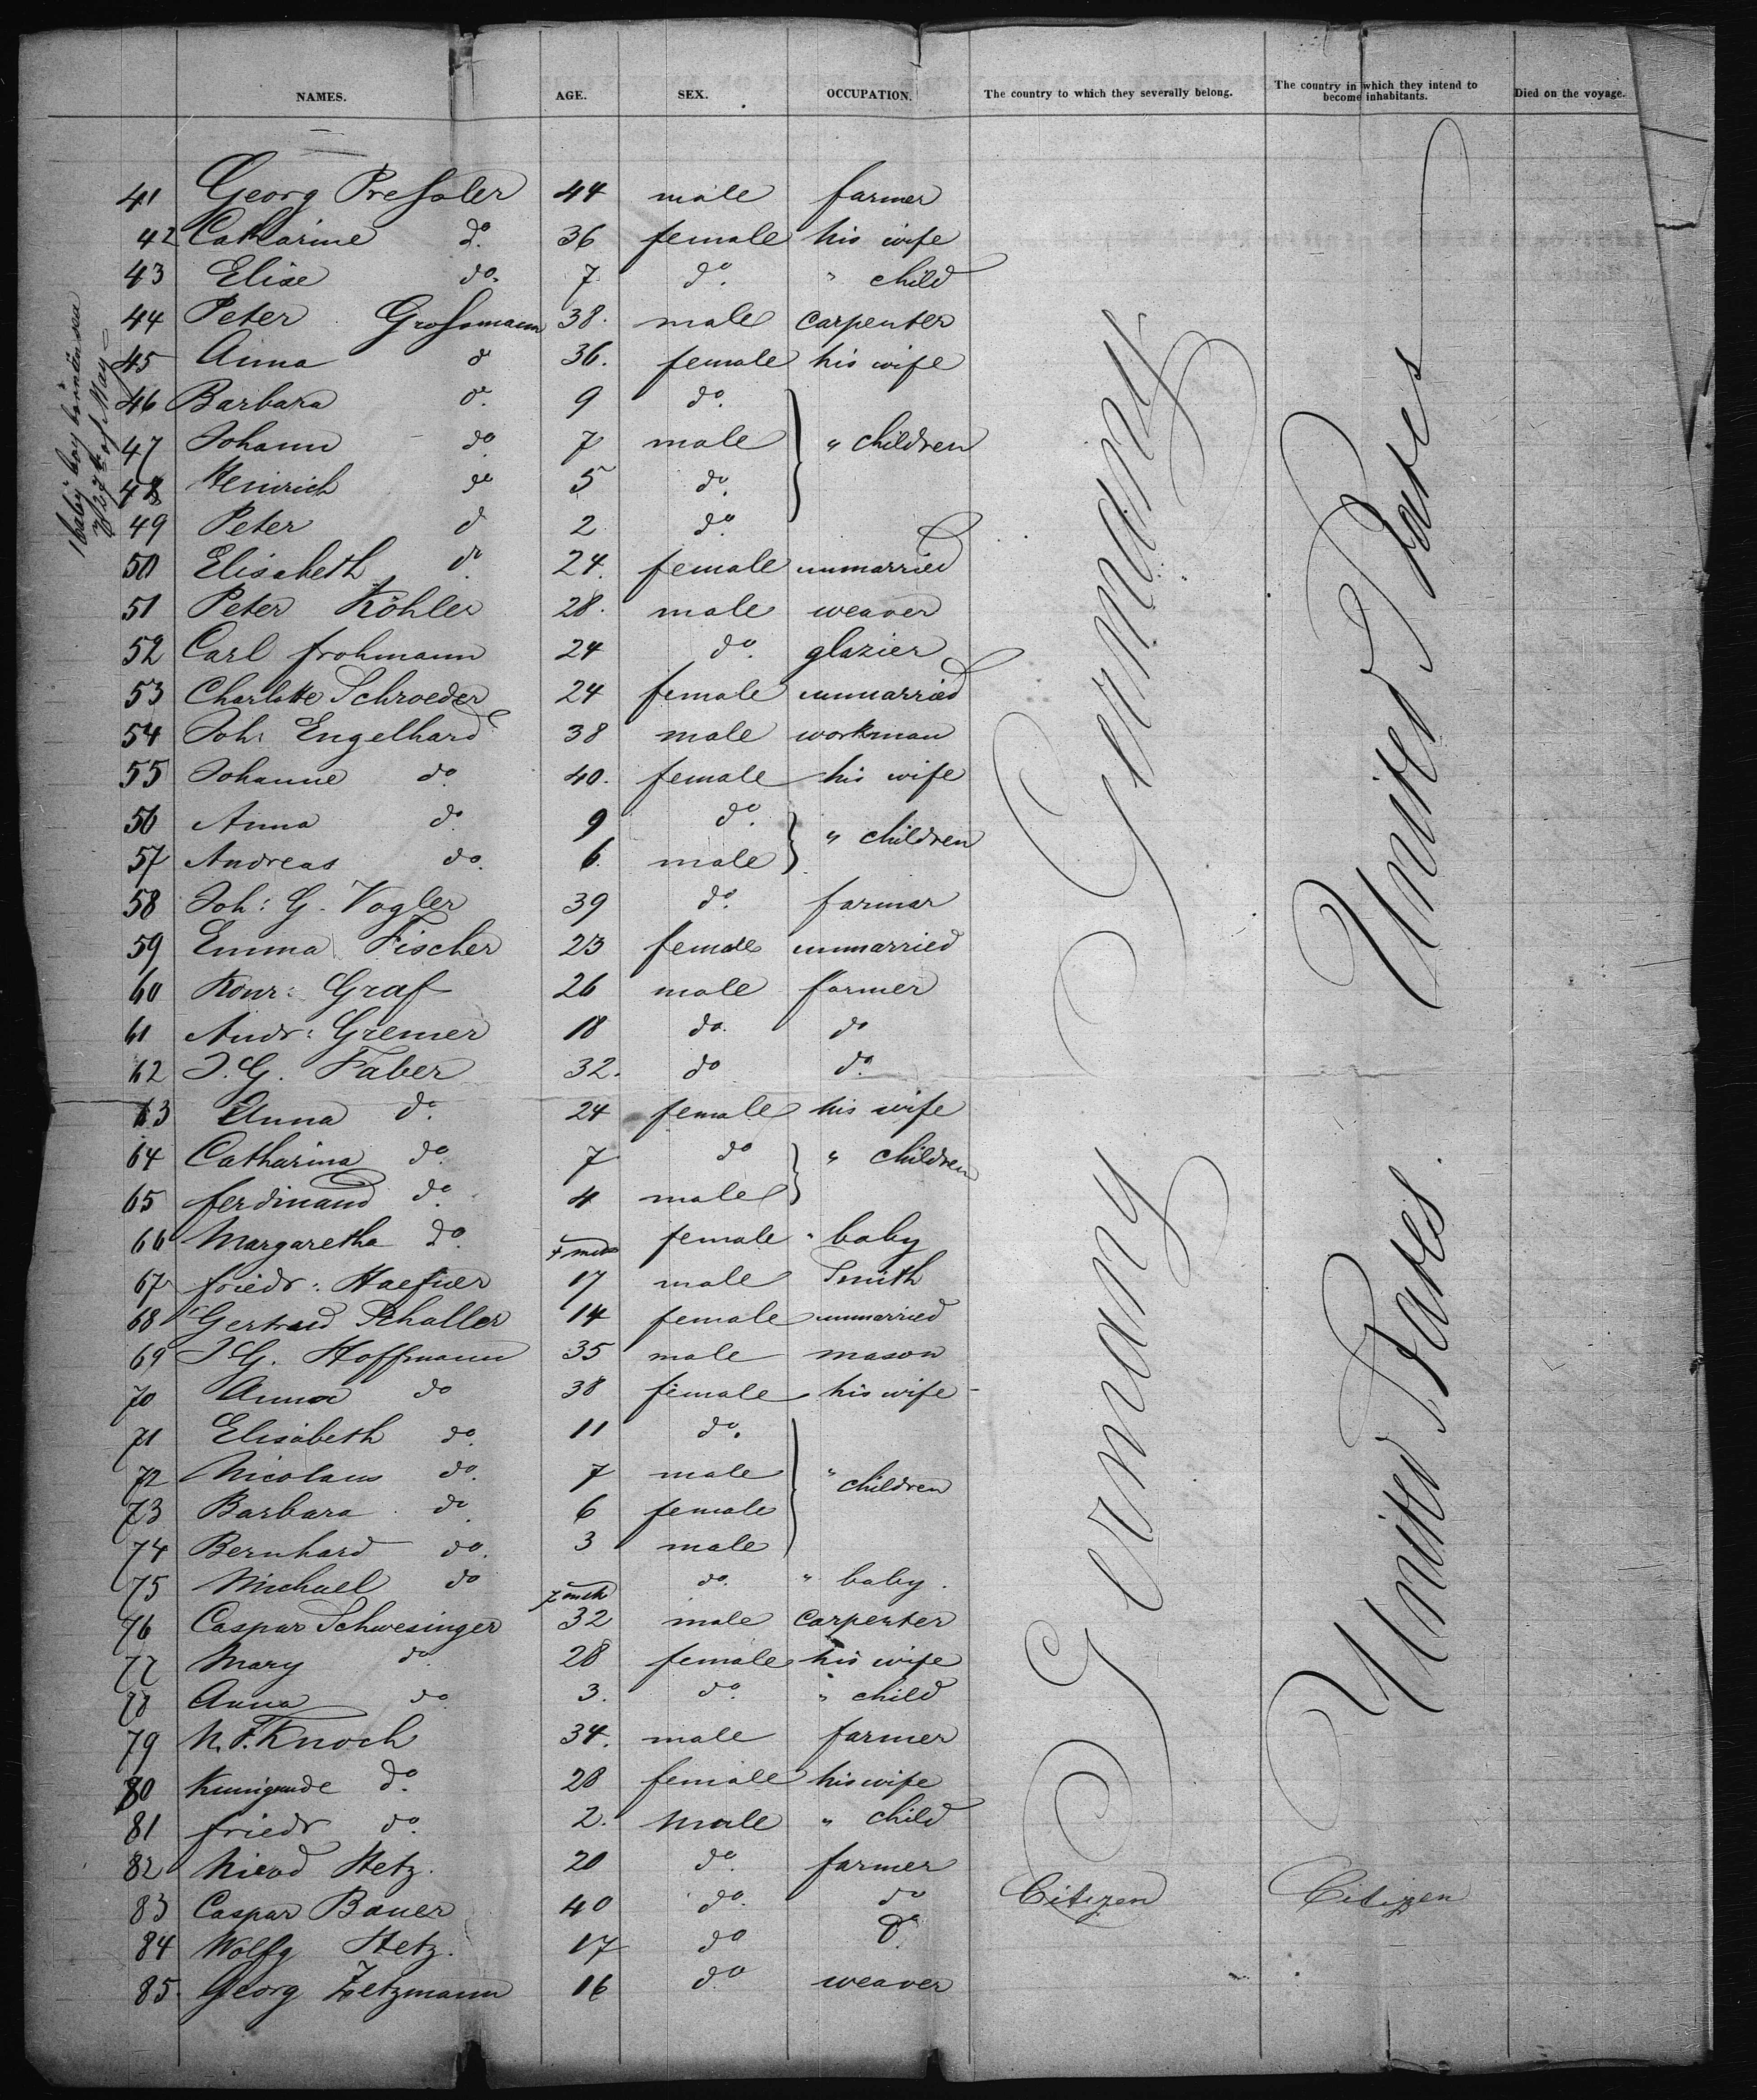 NAMES. AGE. SEX. OCCUPATION. The country to which they severally belong. The country in which they intend to become inhabitants. Died on the voyage.
41 Georg Preßler 44 male farmer
42 Catharine do. 36 female his wife
43 Elise do. 7 do. " child
44 Peter Großmann 38. male carpenter
45 Anna do 36. female his wife
46 Barbara do. 9 do.
47 Johann do. 7 male " children
48 Heinrich do 5 do.
49 Peter do 2 do.
50 Elisabeth do. 24. female unmarried
51 Peter Köhler 28. male weaver
52 Carl Frohmann 24 do. glazier
53 Charlotte Schroeder 24 female unmarried
54 Joh: Engelhard 38 male workman
55 Johanne do. 40. female his wife
56 Anna do. 9 do.
" children
57 Andreas do. 6. male
58 Joh: G. Vogler 39 do. farmar
59 Emma Fischer 23 female unmarried
60 Konr: Graf 26 male farmer
61 Andr: Gremer 18 do. do
62 J. G. Faber 32. do do.
63 Anna do. 24 female his wife
64 Catharina do. 7 do " children
65 Ferdinand do. 4 male
66 Margaretha do. mts female " baby
67 Friedr: Haefner 17 male Smith
68 Gertraud Schaller 14 female unmarried
69 J G. Hoffmann 35 male mason
70 Anna do 38 female his wife
71 Elisabeth do. 11 do.
72 Nicolaus do. 7 male " children
73 Barbara do. 6 female
74 Bernhard do. 3 male
75 Michael do 7 mth do. " baby.
76 Caspar Schwesinger 32 male carpenter
77 Mary do. 28 female his wife
78 Anna do 3. do. " child
79 N. F. Knoch 34. male farmer
80 Kunigunde do. 28 female his wife
81 Friedr do. 2. male " child
82 Hetz. 20 do. farmer
83 Caspar Bauer 40 do. do Citizen Citizen
84 Wolfg Hetz. 17 do do.
85. Georg Zetzmann 16 do. weaver
1 baby boy born on sea
27th of May
Germany
Germany
United States
United States.